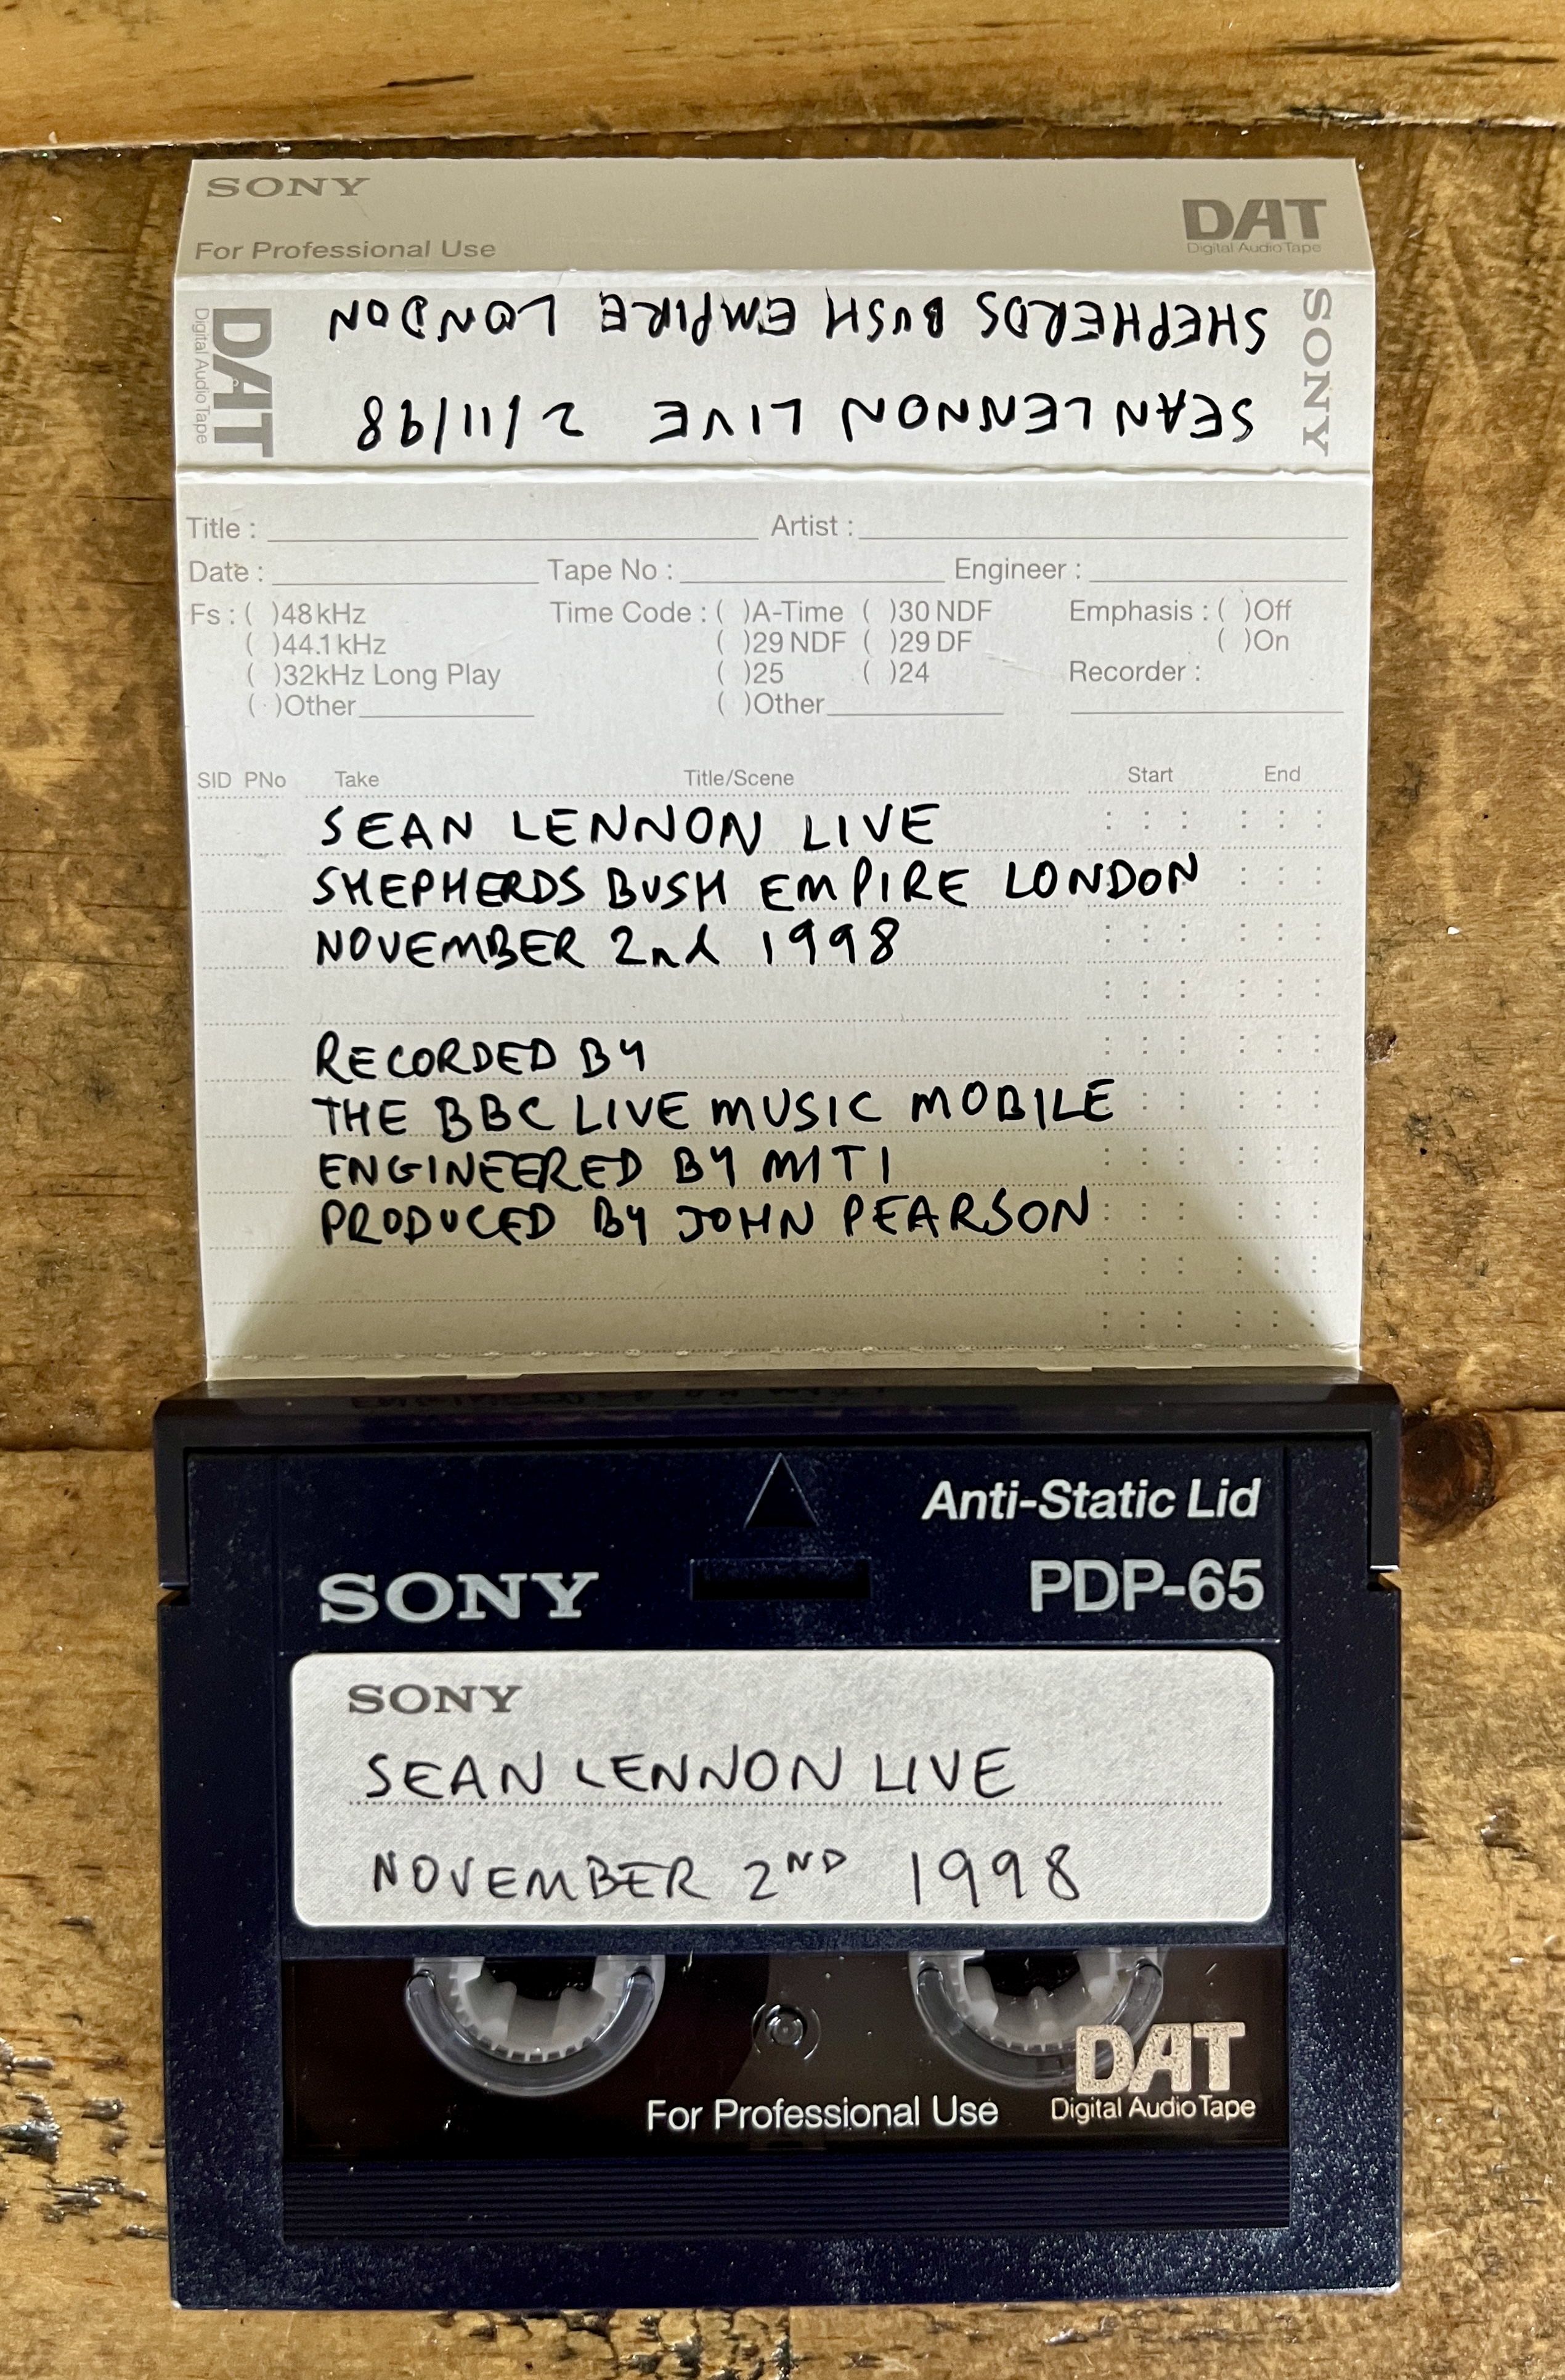 SONY
For Professional Use
DAT
Digital Audio Tape
SONY
SHEPHERDS BUSH EMPIRE LONDON
SEAN LENNON LIVE 2/11/98
DAT
Digital Audio Tape
Title : Artist :
Date : Tape No : Engineer :
Fs : ( )48kHz Time Code : ( )A-Time ( )30 NDF Emphasis : ( )Off
( )44.1kHz ( )29 NDF ( )29 DF ( )On
( )32kHz Long Play ( )25 ( )24 Recorder :
( )Other ( )Other
SID PNo Take Title/Scene Start End
SEAN LENNON LIVE
SHEPHERDS BUSH EMPIRE LONDON
NOVEMBER 2nd 1998
RECORDED BY
THE BBC LIVE MUSIC MOBILE
ENGINEERED BY MITI
PRODUCED BY JOHN PEARSON
Anti-Static Lid
SONY PDP-65
SONY
SEAN LENNON LIVE
NOVEMBER 2ND 1998
DAT
For Professional Use Digital Audio Tape